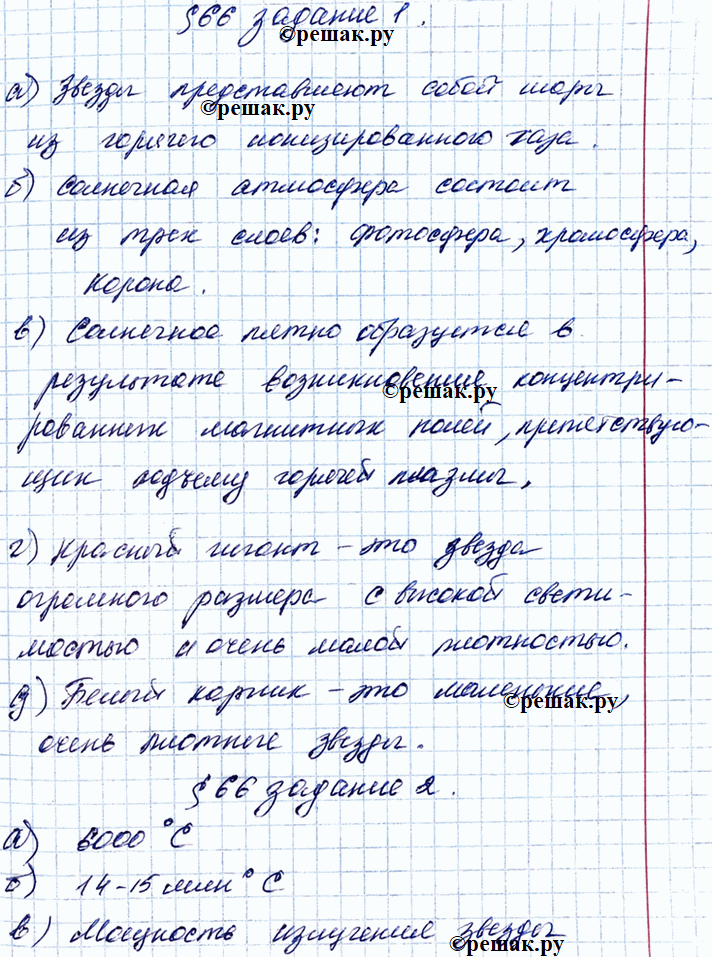 §66 задание 1.
©решак.ру
а) Звезды представляют собой шары
©решак.ру
из горячего ионизированного газа.
б) Солнечная атмосфера состоит
из трех слоев: фотосфера, хромосфера,
корона.
в) Солнечное пятно образуется в
результате возникновения концентри-
©решак.ру
рованных магнитных полей, препятствую-
щих подъему горячей плазмы.
г) Красный гигант - это звезда
огромного размера с высокой свети-
мостью и очень малой плотностью.
д) Белый карлик - это маленькие,
©решак.ру
очень плотные звезды.
§66 задание 2.
а) 6000 °С
б) 14-15 млн °С
в) Мощность излучения звезды
©решак.ру